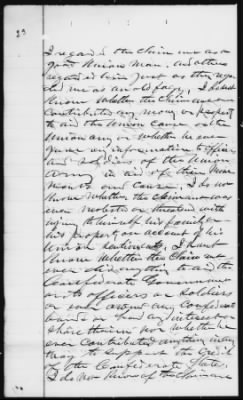 23
I regard the Claimant as a
good Union Man, and others
regarded him just as they regar
ded me as an old fogy, I do not
know whether the Claimant ever
contributed any money or property
to aid the Union Cause or the
Union army or whether he ever
gave any information to officers
and soldiers of the Union
Army in aid of their Move
Ments and Cause. I do not
know whether the Claimant was
ever molested or threatened with
injury to himself his family or
his property on account of his
Union sentiments. I don't
know whether the Claimant
ever did anything to aid the
Confederate Government
or its officers or soldiers
or ever owned any Confederate
bonds or had any interest or
share therein nor whether he
ever contributed anything in any
way to support the Credit
of the Confederate States.
I do not know of the Claimant